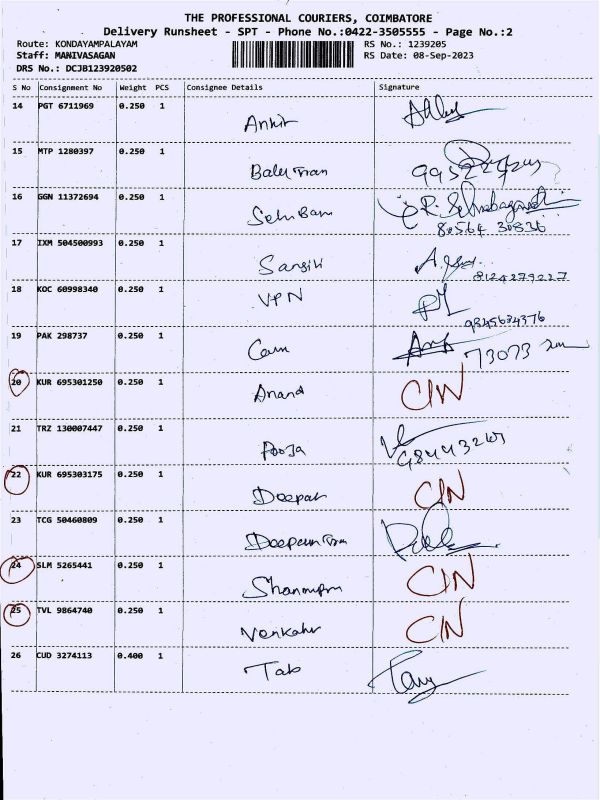 THE PROFESSIONAL COURIERS, COIMBATORE
Delivery Runsheet - SPT - Phone No.:0422-3505555 - Page No.:2
Route: KONDAYAMPALAYAM RS No.: 1239205
Staff: MANIVASAGAN RS Date: 08-Sep-2023
DRS No.: DCJB123920502
S No Consignment No Weight PCS Consignee Details Signature
14 PGT 6711969 0.250 1
Ankit
15 MTP 1280397 0.250 1
16 GGN 11372694 0.250 1
80564 30836
17 IXM 504500993 0.250 1
8124279227
18 KOC 60998340 0.250 1
VPN
9845634376
19 PAK 298737 0.250 1
73073
20 KUR 695301250 0.250 1
Anand CIN
21 TRZ 130007447 0.250 1
Pooja
22 KUR 695303175 0.250 1
Deepak CIN
23 TCG 50460809 0.250 1
24 SLM 5265441 0.250 1
CIN
25 TVL 9864740 0.250 1
CIN
26 CUD 3274113 0.400 1
Tab